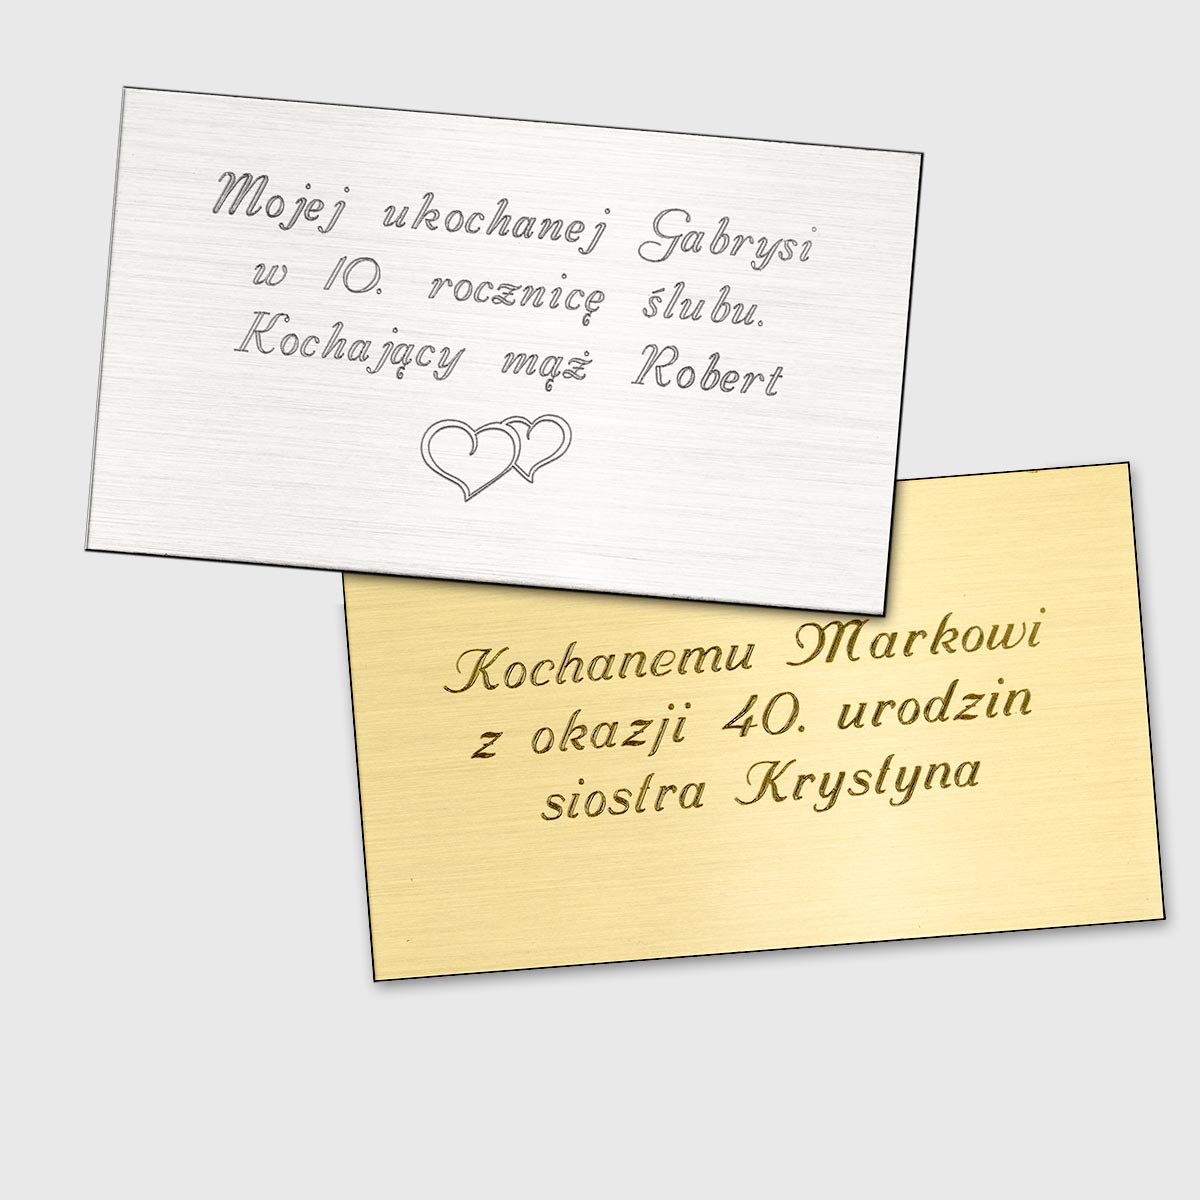 Mojej ukochanej Gabrysi
w 10. rocznicę ślubu.
Kochający mąż Robert
Kochanemu Markowi
z okazji 40. urodzin
siostra Krystyna